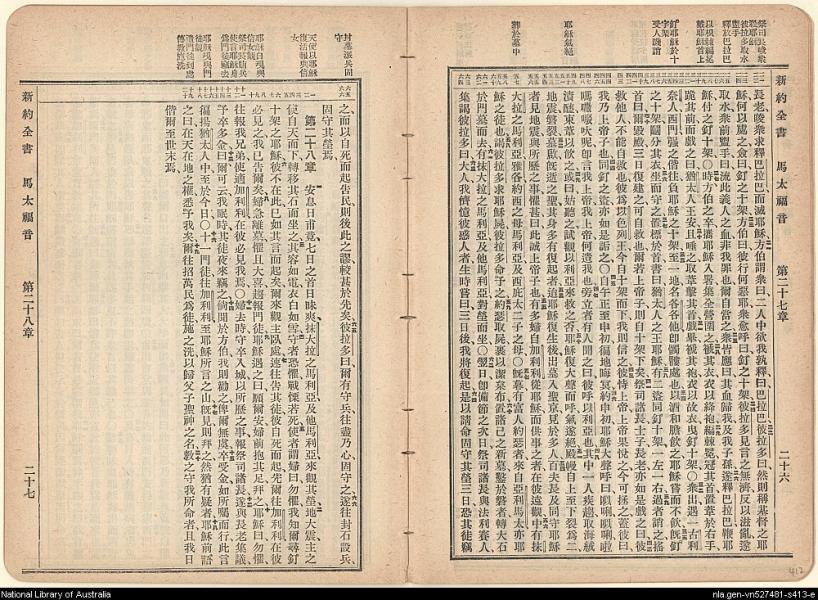 新約全書 馬太福音 第二十七章 二十六
祭司長唆衆
求彼拉多
釋巴拉巴
以棘編冕
戴耶穌首上
釘耶穌於十字架
受人譏誚
耶穌氣絕
葬於墓中
長老唆衆求釋巴拉巴而滅耶穌方伯謂衆曰二人中欲我孰釋曰巴拉巴彼拉多曰然則稱基督之耶
穌何以處之僉曰釘之十字架方伯曰彼行何惡耶衆愈呼曰釘之十字架彼拉多見言之無濟反以滋亂遂
取水衆前盥手曰流此義人之血非我罪也爾自當之衆皆應曰其血歸我及我子孫遂釋巴拉巴鞭耶
穌付之釘十字架〇時方伯之卒携耶穌入署集全營圍之褫其衣衣以絳袍編棘冕冠其首置葦於右手
跪其前而戲之曰猶太人王安且唾之取葦擊其首戲畢褫其袍衣以故衣曳釘十字架〇衆出遇一古利
奈人西門強之偕往負耶穌之十字架至一地名各各他即髑髏處也以酒和膽飲之耶穌嘗而不欲飲既釘
之十字架鬮分其衣坐而守之置標於首書曰猶太人之王耶穌有二盜同釘十字架一左一右過者誚之搖
首曰爾毀殿三日復建之可自救也爾若上帝子則自十字架下矣祭司諸長士子長老亦如是戲之曰彼
救他人不能自救也彼爲以色列王今自十字架而下我則信之彼恃上帝上帝果悅之今可拯之蓋彼曰
我乃上帝子也同釘之盜亦如是詬之〇自午正至申初徧地晦冥約申初耶穌大聲呼曰以唎以唎啦
嗎㗑吸呔呢即言我上帝我上帝何遺我也旁立者有人聞之曰彼呼以利亞也其中一人疾趨取海絨
漬醯束葦以飲之或曰姑聽之試觀以利亞來救之否耶穌復大聲而呼氣遂絕殿幔自上至下裂爲二
地震磐裂墓啟既逝之聖其身多有復起者追耶穌復生後出墓入聖京見於多人百夫長及同守耶穌
者見地震與所歷之事懼甚曰此誠上帝子也有多婦自加利利從耶穌而供事之者在彼遠觀中有抹
大拉之馬利亞雅各約西之母馬利亞及西庇太二子之母〇既暮有富人約瑟者來自亞利馬太亦耶
穌之徒也謁彼拉多求耶穌屍彼拉多命予之約瑟取屍裹以潔枲布置諸己之新墓鑿於磐者轉大石
於門墓而去有抹大拉之馬利亞及他馬利亞對塋而坐〇翌日即備節之次日祭司諸長與法利賽人
集謁彼拉多曰大人我儕憶彼惑人者生時嘗曰三日後我將復起是以請命固守其塋三日恐其徒竊
封墓派兵固守
天使以耶穌復活報與信女
耶穌自現與信女觀
祭司長賄兵
耶穌現與門徒觀
遣門徒到處傳教施洗
之而以自死而起告民則後此之謬較甚於先矣彼拉多曰爾有守兵往盡乃心固守之遂往封石設兵
固守其塋焉
第二十八章 安息日甫竟七日之首日昧爽抹大拉之馬利亞及他馬利亞來觀其塋地大震主之
使自天而下轉移其石而坐之其容如電衣白如雪守者恐懼戰慄若死使者謂婦曰勿懼我知爾尋釘
十架之耶穌彼不在此已如其言而起矣爾來觀主臥處速往告其徒彼自死而起先爾往加利利在彼
必見之我已告爾矣婦急離墓懼且大喜趨報門徒耶穌遇之曰願爾安婦前抱其足拜之耶穌曰勿懼
往報我兄弟使適加利利在彼必見我焉〇婦去時守卒入城以所歷之事報祭司諸長遂與長老集議
予卒多金曰爾可云我眠時其徒夜來竊之倘聞於方伯我則勸之俾爾無虞卒受金如所囑而行此言
徧揚猶太人中至於今日〇十一門徒往加利利至耶穌所言之山既見則拜之然猶有疑者耶穌前語
之曰在天在地之權悉予我矣爾往招萬民爲徒施之洗以歸父子聖神之名敎之守我所命者且我日
偕爾至世末焉
新約全書 馬太福音 第二十八章 二十七
412
National Library of Australia
nla.gen-vn527481-s413-e